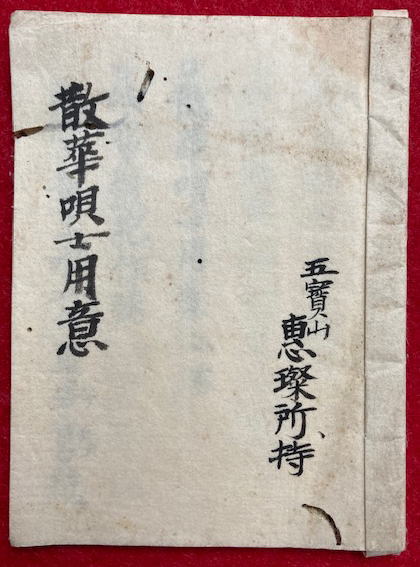 五寳山
惠璨所持
散華唄士用意